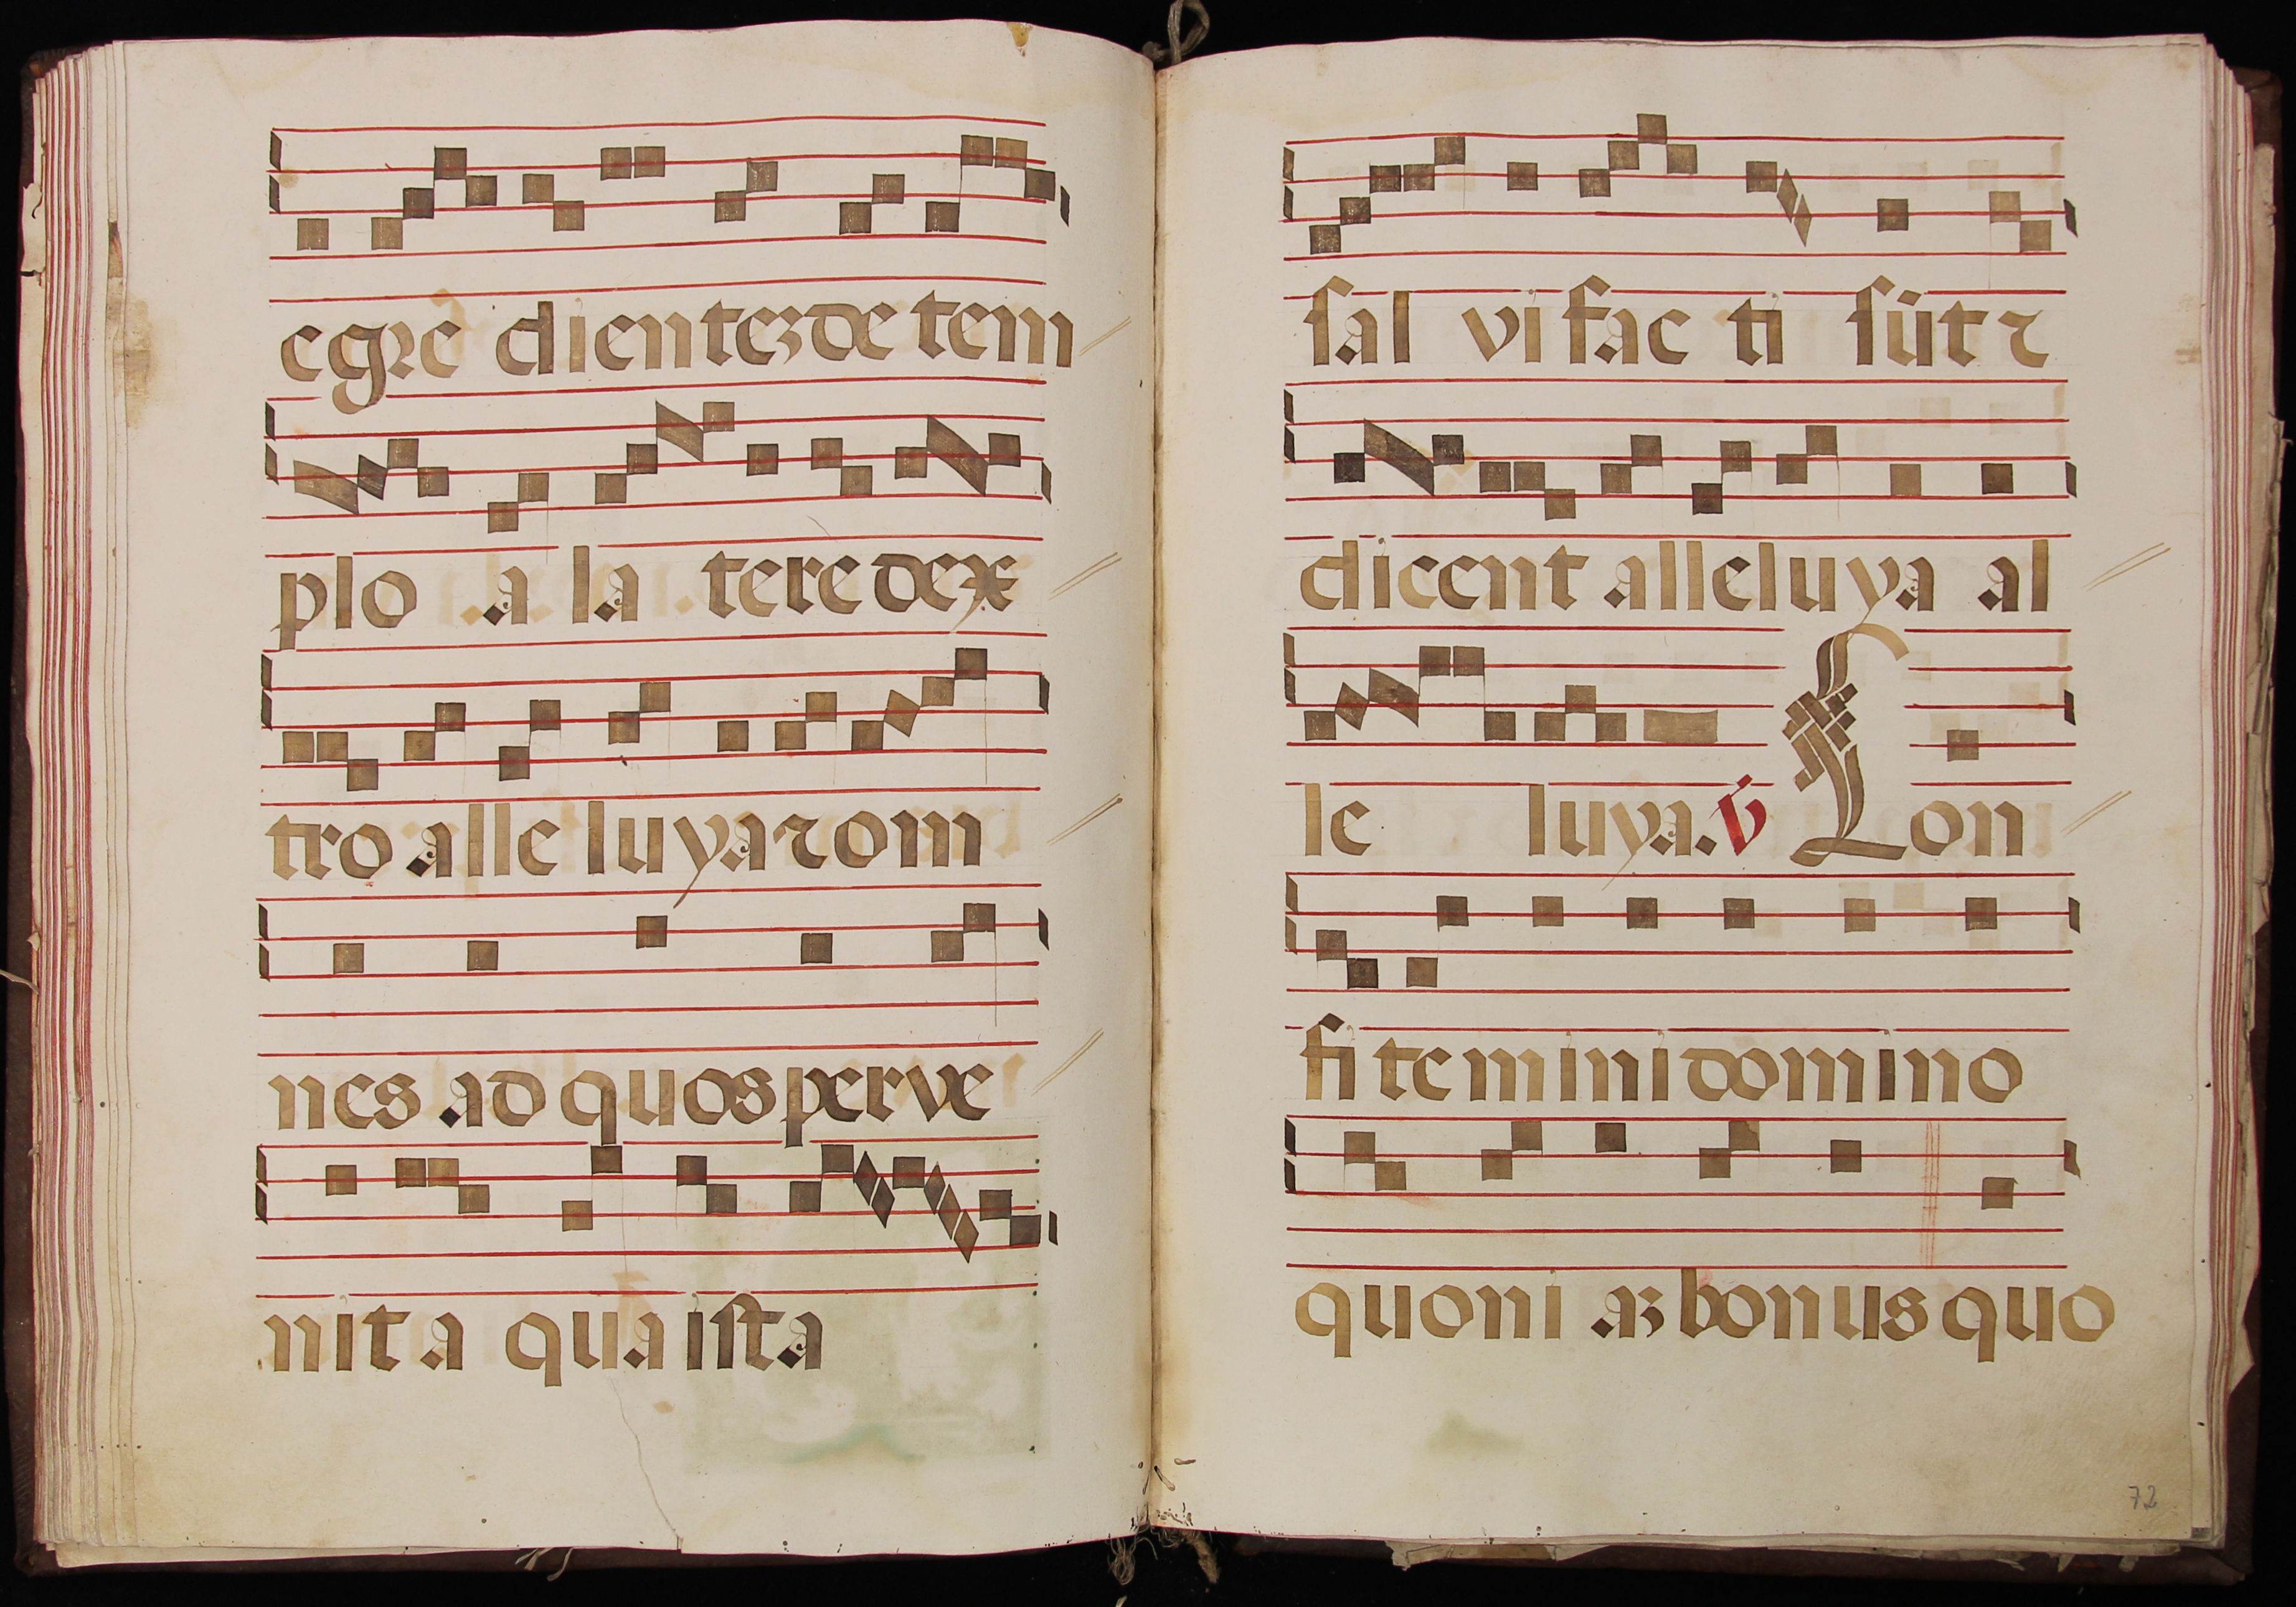 egre dientezde tem
plo a la tere dex
tro alle luya ⁊ om
nes ad quos perve
nit a qua ista
sal vi fac ti sūt ⁊
dicent alleluya al
le luya. V̄ Con
fi te mini domino
quoni aʒ bonus quo
72